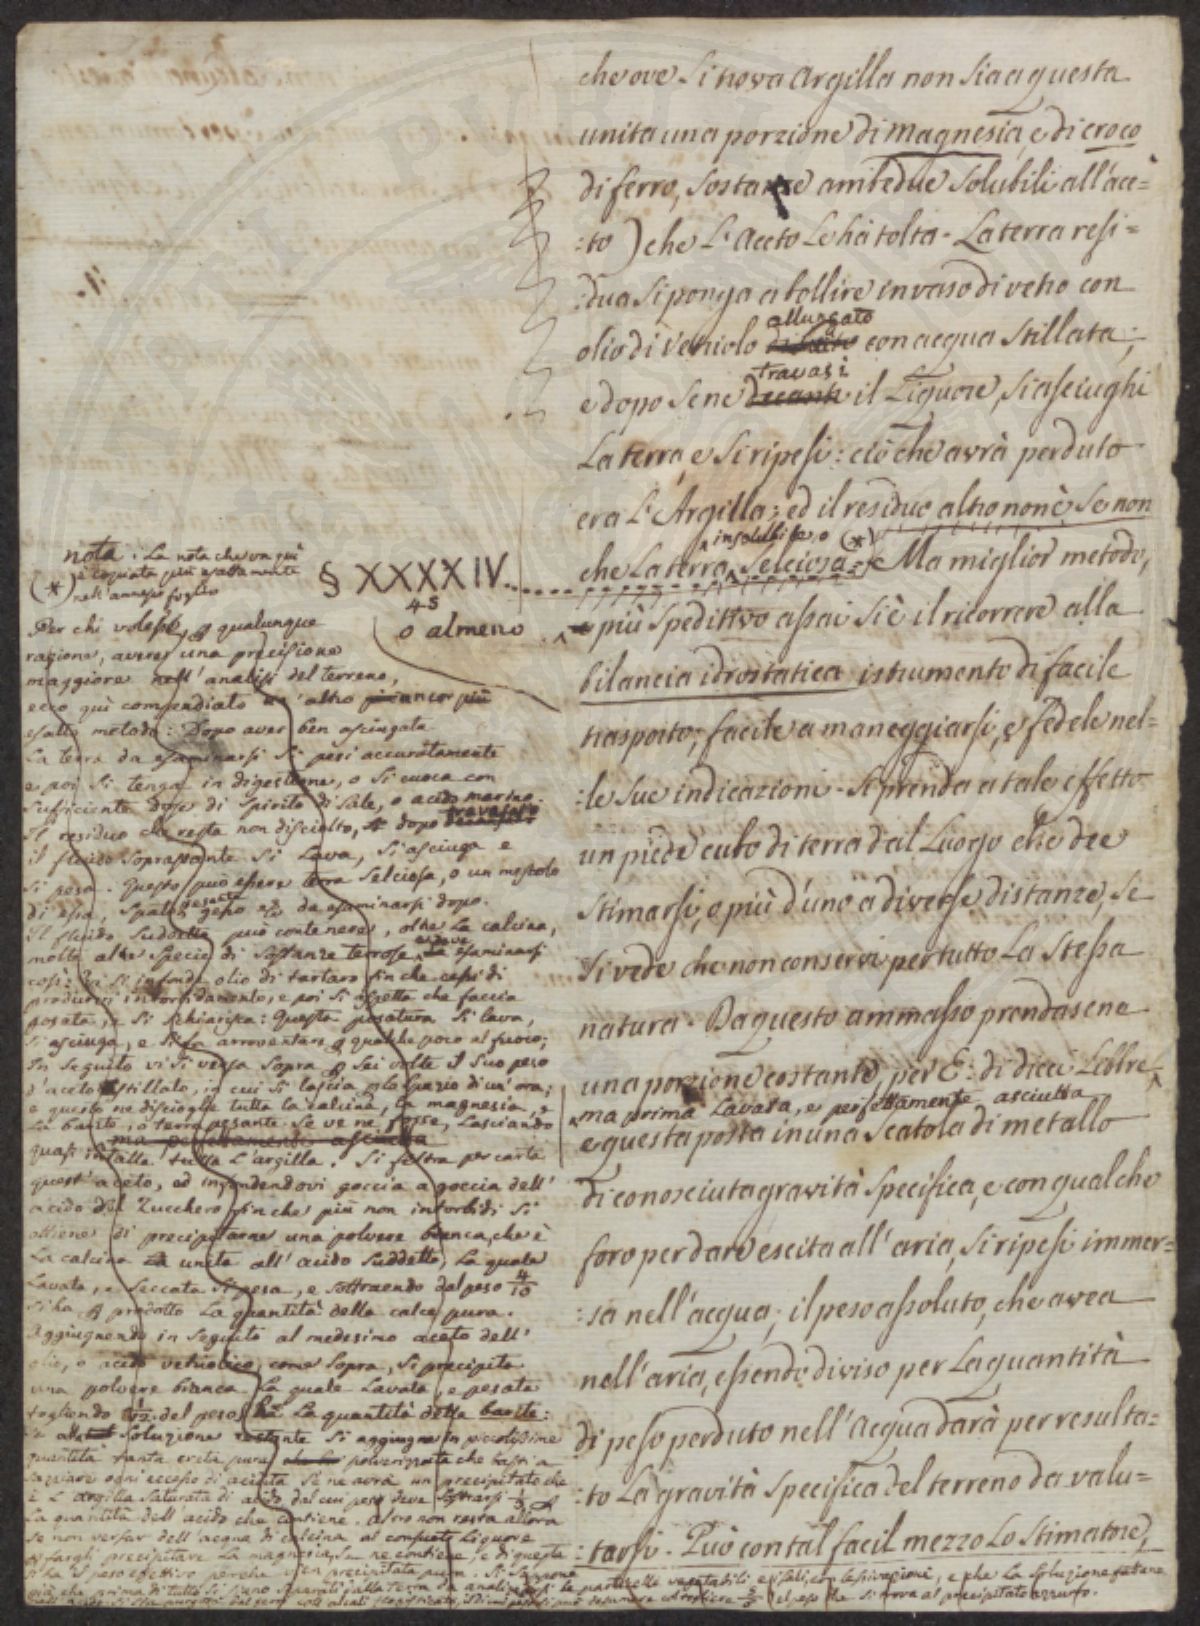 che ove si trova Argilla non sia a questa
unita una porzione di magnesia, e di croco
di ferro, sostanze ambedue solubili all'ace=
:to) che L'Aceto Le hà tolta. La terra resi=
:dua si ponga a bollire in vaso di vetro con
allungato
olio di vetriolo con acqua stillata;
travasi
e dopo se ne decanti il Liquore, si asciughi
La terra, e si ripesi: ciò che avrà perduto
era L'Argilla; ed il residuo altro non è se non
insolubile, o (*)
che La terra Selciosa. Ma miglior metodo,
§ XXXXIV......
45
o almeno
più speditivo assai si è il ricorrere alla
bilancia idrostatica istrumento di facile
trasporto, facile a maneggiarsi, e fedele nel=
:le sue indicazioni. Si prenda a tale effetto
un piede cubo di terra dal Luogo che dee
stimarsi, e più d'uno a diverse distanze, se
si vede che non conservi per tutto La stessa
natura. Da questo ammasso prendasene
una porzione costante, per E: di dieci Lebbre,
ma prima Lavata, e perfettamente asciutta
e questa posta in una scatola di metallo
di conosciuta gravità specifica, e con qualche
foro per dare escita all'aria, si ripesi immer=
:sa nell'acqua; il peso assoluto, che avea
nell'aria, essendo diviso per La quantità
di peso perduto nell'Acqua darà per resulta=
:to La gravità specifica del terreno da valu=
:tarsi. Può con tal facil mezzo Lo Stimatore,
nota. La nota che va quì
è copiata più esattamente
(*) nell'annesso foglio
Per chi volesse, qualunque
ragione, avere una precisione
maggiore nell'analisi del terreno,
ecco quì compendiato un'altro ancor più
esatto metodo: Dopo aver ben asciugata
La terra da esaminarsi si pesi accuratamente
e poi si tenga in digestione, o si cuoca con
sufficiente dose di spirito di sale, o acido marino.
Il residuo che resta non disciolto, dopo travasato
il fluido soprastante si Lava, si asciuga e
si pesa. Questo può essere terra Selciosa, o un mescolo
di essa, spato, gesso da esaminarsi dopo.
Il fluido suddetto può contenere, oltre La calcina,
molte altre specie di sostanze terrose esaminarsi
così: si infonde olio di tartaro finche cessi di
prodursi intorbidamento, e poi si aspetta che faccia
posata, e si schiarisca: Questa posatura si lava,
si asciuga, e si fa arroventare qualche poco al fuoco;
In seguito vi si versa sopra sei volte il suo peso
d'aceto stillato, in cui si Lascia Lo spazio di un'ora;
e questo ne discioglie tutta la calcina, la magnesia, e
La barite, o terra pesante se ve ne fosse, Lasciando
ma perfettamente asciutta
quasi intatta tutta L'argilla. Si feltra per carta
quest'aceto, ed infondendovi goccia a goccia dell'
acido del Zucchero finche più non intorbidi si
ottiene di precipitarne una polvere bianca, che è
La calcina unita all'acido suddetto, La quale
Lavata, e seccata si pesa, e sottraendo dal peso 4/10
si ha prodotto La quantità della calce pura.
Aggiugnendo in seguito al medesimo aceto dell'
olio, o acido vetriolico, come sopra, si precipita
una polvere bianca La quale Lavata, e pesata
togliendo del peso La quantità della barite:
soluzione restante si aggiugne in piccolissime
quantità tanta creta pura polverizzata che basti a
saziare ogni eccesso di acidità si ne avrà un precipitato che
è L'argilla saturata di acido dal cui peso deve sottrarsi
La quantità dell'acido che contiene. Altro non resta allora
se non versar dell'acqua di calcina al Liquore
e fargli precipitare La magnesia, se ne contiene, e di questa
si ha il peso effettivo perche vien precipitata pura. Si suppone
già, che prima di tutto si siano separati dalla terra da analizzarsi le particelle vegetabili e i sali, con lisciviazioni, e che La soluzione